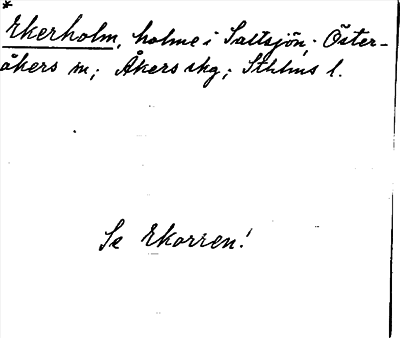 *
Ekerholm, holme i Saltsjön; Öster-
åkers sn; Åkers skg; Sthlms l.
Se Ekorren!